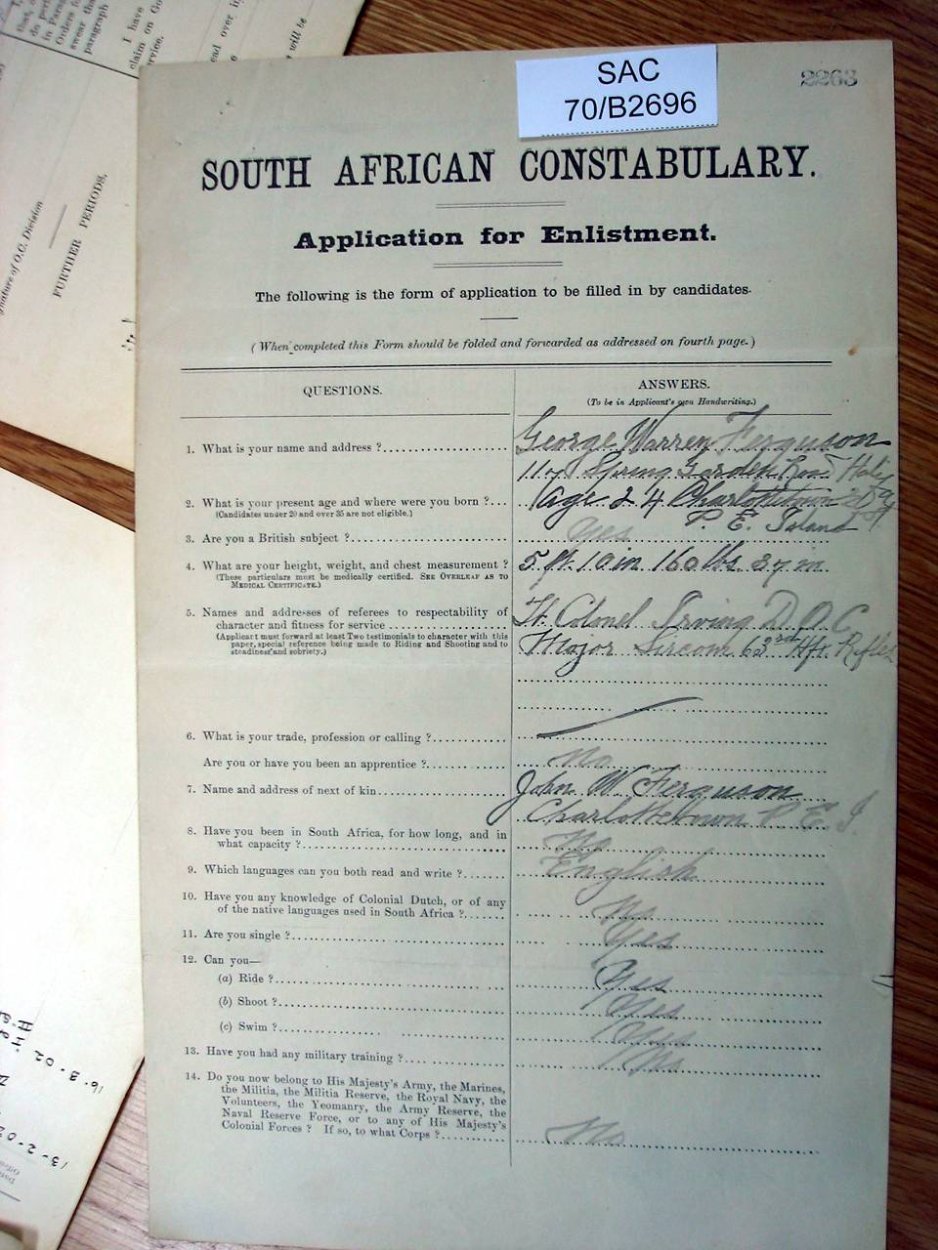 SAC
70/B2696
2263
SOUTH AFRICAN CONSTABULARY.
Application for Enlistment.
The following is the form of application to be filled in by candidates.
(When completed this Form should be folded and forwarded as addressed on fourth page.)
QUESTIONS.
ANSWERS.
(To be in Applicant's own Handwriting.)
1. What is your name and address ?
George Warren Ferguson
Spring Garden Road
2. What is your present age and where were you born ?
(Candidates under 20 and over 35 are not eligible.)
Age 24 Charlottetown
P. E. Island
3. Are you a British subject ?
Yes
4. What are your height, weight, and chest measurement ?
(These particulars must be medically certified. SEE OVERLEAF AS TO
MEDICAL CERTIFICATE.)
5 ft. 10 in 160 lbs 37 in.
5. Names and addresses of referees to respectability of
character and fitness for service
(Applicant must forward at least Two testimonials to character with this
paper, special reference being made to Riding and Shooting and to
steadiness and sobriety.)
Lt. Colonel Irving D.O.C
Major Sircom 63rd Hfx. Rifles
6. What is your trade, profession or calling ?
Are you or have you been an apprentice ?
No
7. Name and address of next of kin
John W. Ferguson
Charlottetown P E I
8. Have you been in South Africa, for how long, and in
what capacity ?
No
9. Which languages can you both read and write ?
English
10. Have you any knowledge of Colonial Dutch, or of any
of the native languages used in South Africa ?
No
11. Are you single ?
Yes
12. Can you—
(a) Ride ?
Yes
(b) Shoot ?
Yes
(c) Swim ?
Yes
13. Have you had any military training ?
Yes
14. Do you now belong to His Majesty's Army, the Marines,
the Militia, the Militia Reserve, the Royal Navy, the
Volunteers, the Yeomanry, the Army Reserve, the
Naval Reserve Force, or to any of His Majesty's
Colonial Forces ? If so, to what Corps ?
No
FURTHER PERIODS.
of O.C. Division
I have
claim on
paragraph
will be
16.3.02
13-2-02